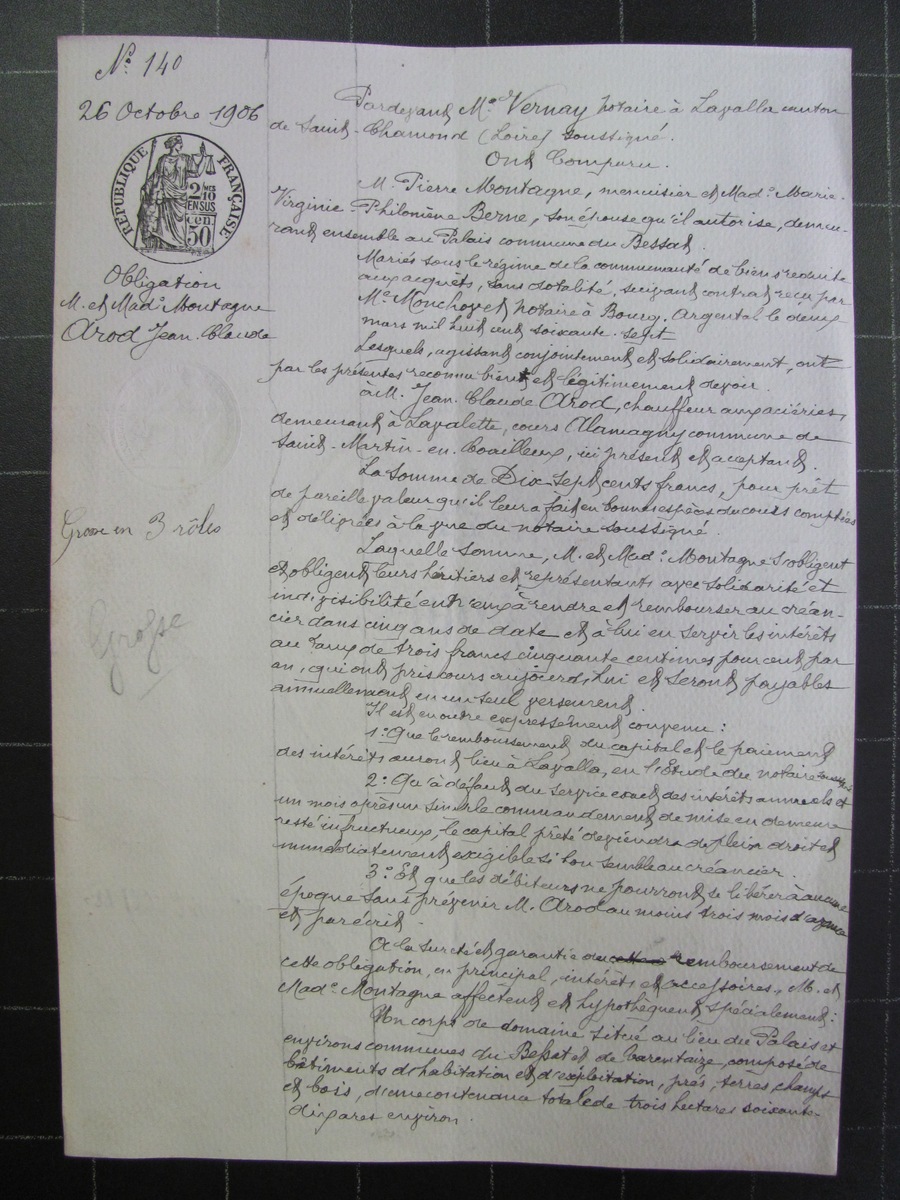 N° 140
26 Octobre 1906
RÉPUBLIQUE FRANÇAISE
2 MES
10
EN SUS
cen
50
Obligation
M. et Made Montagne
Arod Jean-Claude
Grosse en 3 rôles
Grosse
Pardevant Me Vernay notaire à Lavalla canton
de Saint-Chamond (Loire) soussigné.
Ont Comparu.
M. Pierre Montagne, menuisier et Made Marie-
Virginie-Philomène Berne, son épouse qu'il autorise, demeu-
rant ensemble au Palais commune du Bessat.
Mariés sous le régime de la communauté de biens réduite
aux acquêts, sans dotalité, suivant contrat reçu par
Me Monchovet notaire à Bourg-Argental le deux
mars mil huit cent soixante-sept
Lesquels, agissant conjointement et solidairement, ont
par les présentes reconnu bien et légitimement devoir.
à M. Jean-Claude Arod, chauffeur aux aciéries,
demeurant à Lavalette, cours Alamagny commune de
Saint-Martin-en-Coailleux, ici présent et acceptant.
La somme de Dix-Sept cents francs, pour prêt
de pareille valeur qu'il leur a fait en bonnes espèces du cours comptées
et délivrées à la vue du notaire soussigné.
Laquelle somme, M. et Made Montagne s'obligent
et obligent leurs héritiers et représentants avec solidarité et
indivisibilité entr'eux à rendre et rembourser au créan-
cier dans cinq ans de date et à lui en servir les intérêts
au taux de trois francs cinquante centimes pour cent par
an, qui ont pris cours aujourd'hui et seront payables
annuellement en un seul versement.
Il est en outre expressément convenu :
1° Que le remboursement du capital et le paiement
des intérêts auront lieu à Lavalla, en l'Étude du notaire soussigné
2° Qu'à défaut du service exact des intérêts annuels et
un mois après un simple commandement de mise en demeure
resté infructueux, le capital prêté deviendra de plein droit et
immédiatement exigible si bon semble au créancier.
3° Et que les débiteurs ne pourront se libérer à aucune
époque sans prévenir M. Arod au moins trois mois d'avance
et par écrit.
A la sureté et garantie du remboursement de
cette obligation, en principal, intérêts et accessoires, M. et
Made Montagne affectent et hypothèquent spécialement :
Un corps de domaine situé au lieu du Palais et
environs communes du Bessat et de Tarentaize, composé de
bâtiments d'habitation et d'exploitation, prés, terres, champs
et bois, d'une contenance totale de trois hectares soixante-
dix ares environ.